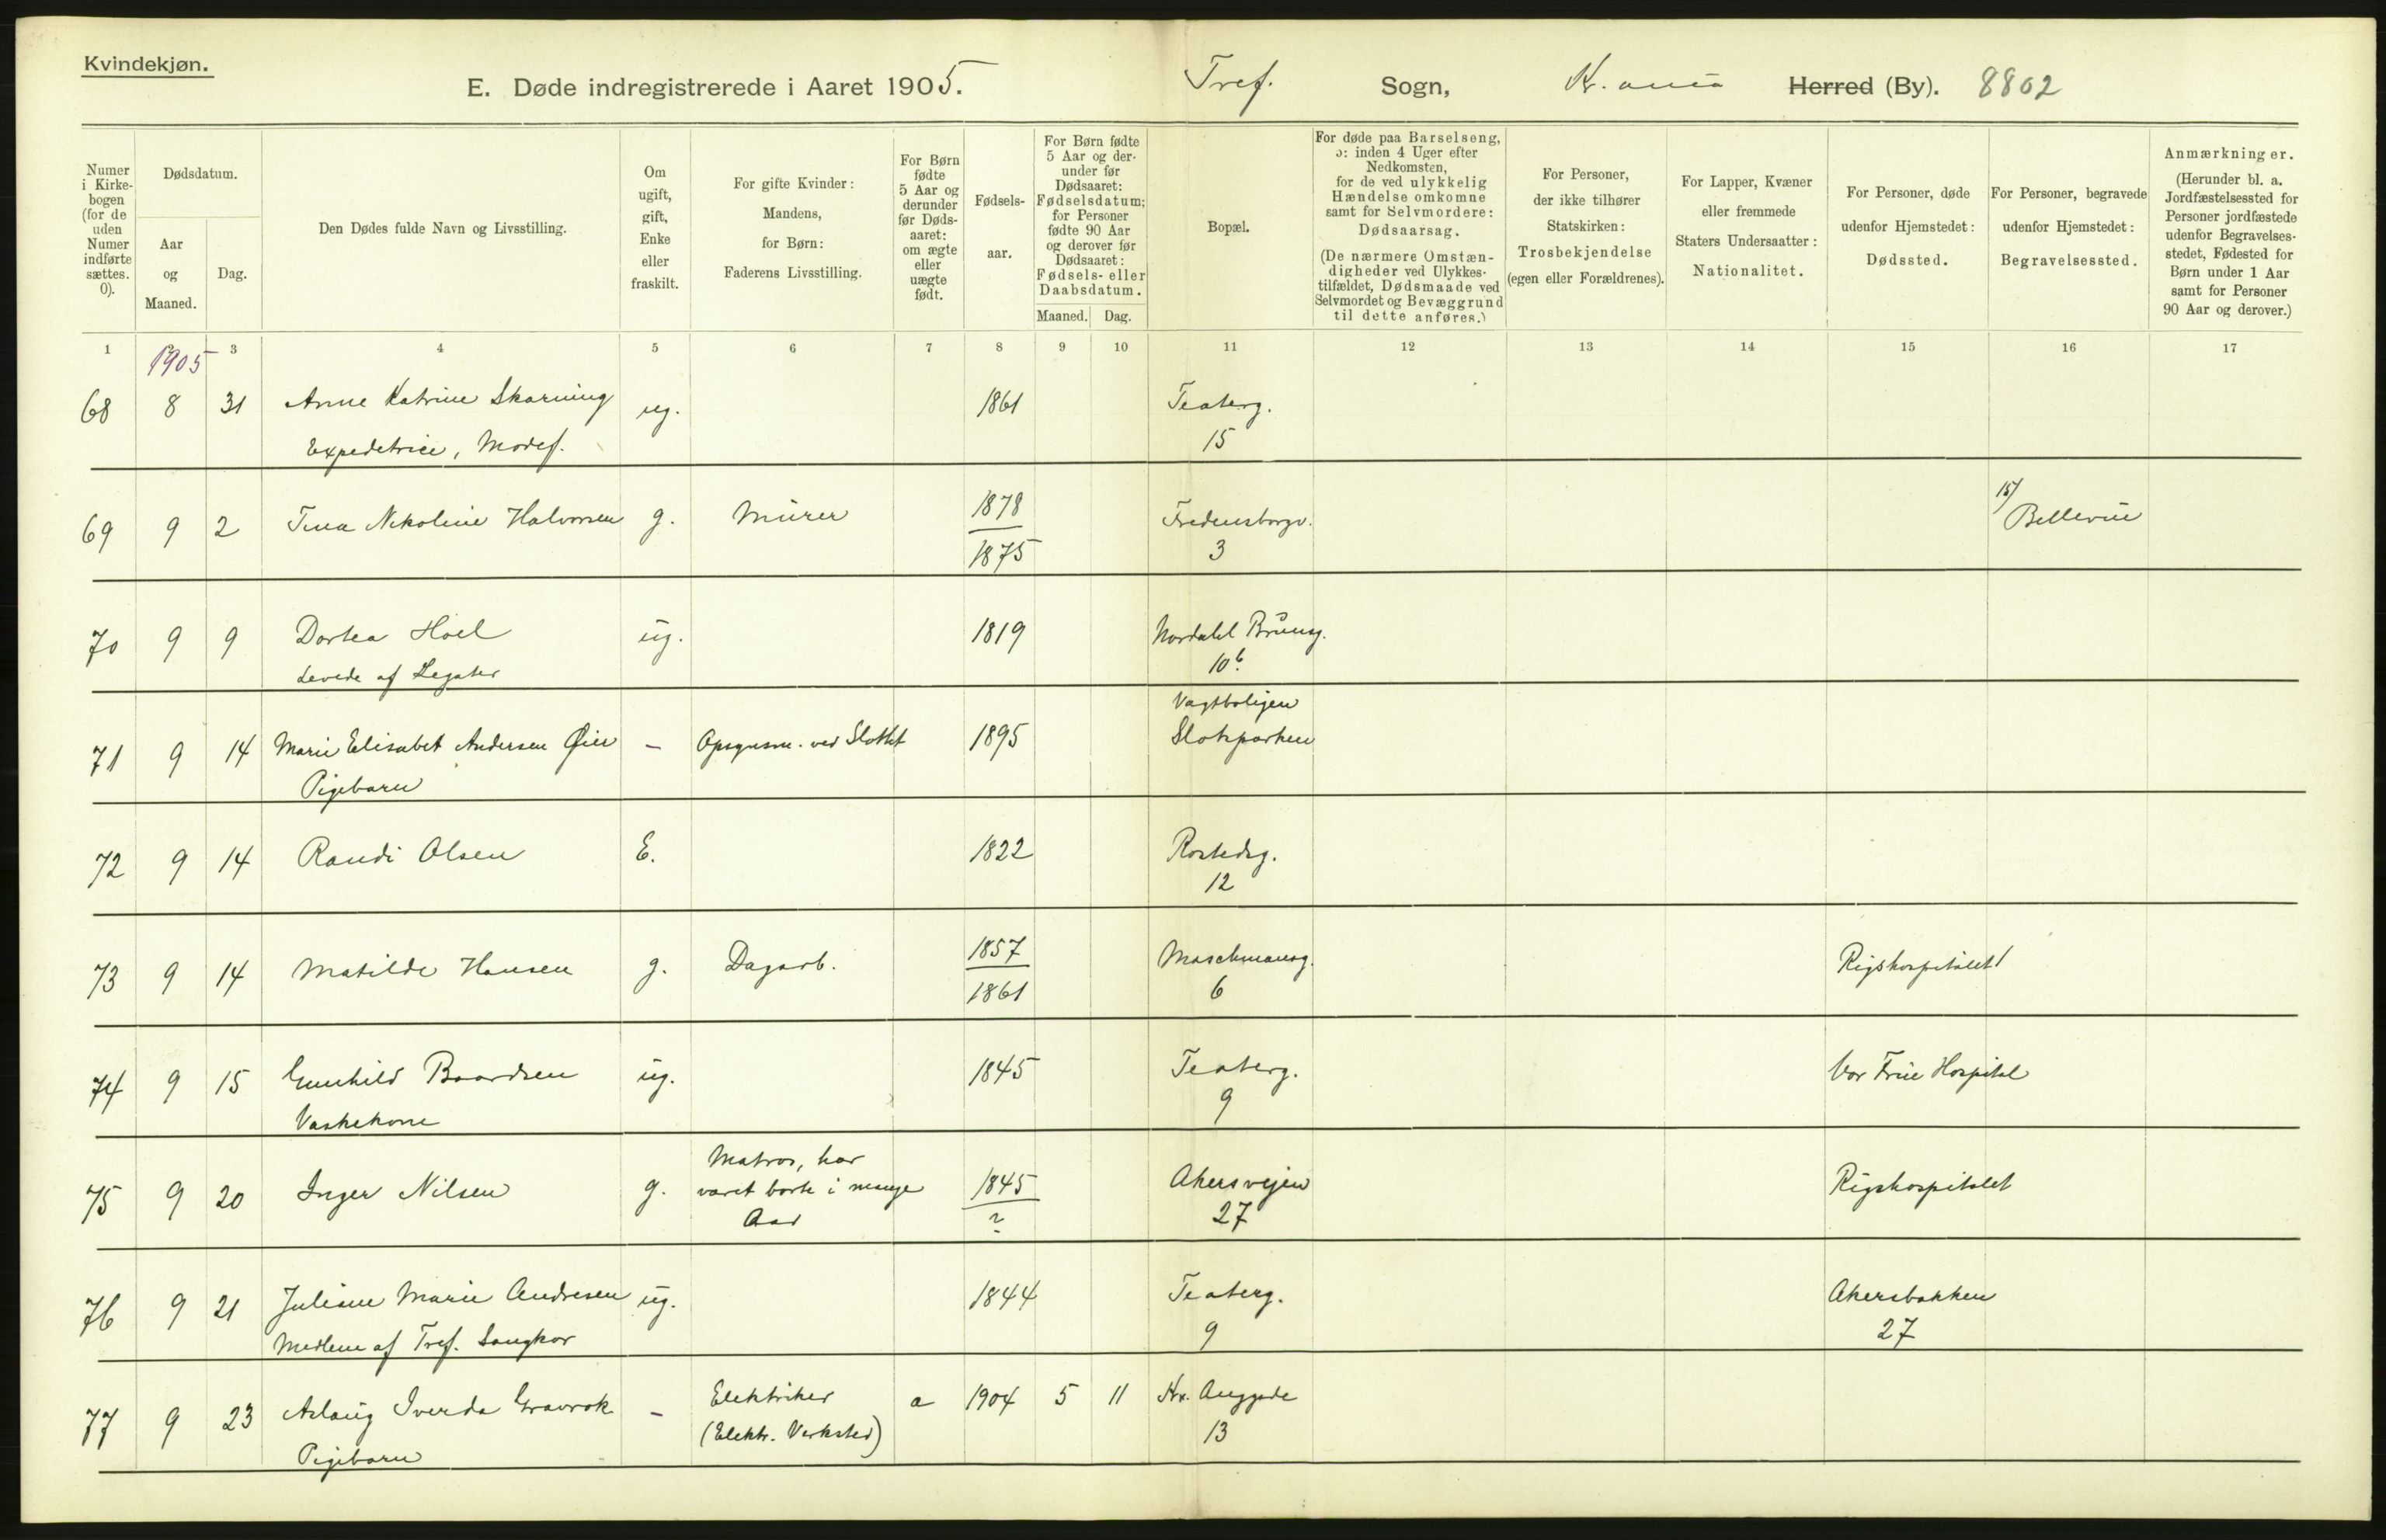 Kvindekjøn.
E. Døde indregistrerede i Aaret 1905. Tref. Sogn, Kr.ania Herred (By). 8802
Numer i Kirkebogen (for de uden Numer indførte sættes. 0).
Dødsdatum.
Aar og Maaned.
Dag.
Den Dødes fulde Navn og Livsstilling.
Om ugift, gift, Enke eller fraskilt.
For gifte Kvinder: Mandens, for Børn: Faderens Livsstilling.
For Børn fødte 5 Aar og derunder før Døds-aaret: om ægte eller uægte født.
Fødsels-aar.
For Børn fødte 5 Aar og der-under før Dødsaaret: Fødselsdatum; for Personer fødte 90 Aar og derover før Dødsaaret: Fødsels- eller Daabsdatum.
Maaned. Dag.
Bopæl.
For døde paa Barselseng, ɔ: inden 4 Uger efter Nedkomsten, for de ved ulykkelig Hændelse omkomne samt for Selvmordere: Dødsaarsag.
(De nærmere Omstæn-digheder ved Ulykkes-tilfældet, Dødsmaade ved Selvmordet og Bevæggrund til dette anføres.)
For Personer, der ikke tilhører Statskirken: Trosbekjendelse (egen eller Forældrenes).
For Lapper, Kvæner eller fremmede Staters Undersaatter: Nationalitet.
For Personer, døde udenfor Hjemstedet: Dødssted.
For Personer, begravede udenfor Hjemstedet: Begravelsessted.
Anmærkninger.
(Herunder bl. a. Jordfæstelsessted for Personer jordfæstede udenfor Begravelses-stedet, Fødested for Børn under 1 Aar samt for Personer 90 Aar og derover.)
1 3 4 5 6 7 8 9 10 11 12 13 14 15 16 17
1905
68 8 31 Anne Katrine Skarning ug. 1861 Teaterg.
Expeditrice, Modef. 15
69 9 2 Tina Nikoline Halvorsen g. Murer 1878 Fredensborgv. 15/ Bellevue
1875 3
70 9 9 Dortea Hoel ug. 1819 Nordahl Brunsg.
Levede af Legater 10b.
Vagtboligen
71 9 14 Marie Elisabet Andersen Øier — Opsynsm. ved Slottet 1895 Slotsparken
Pigebarn
72 9 14 Randi Olsen E. 1822 Rostedsg.
12
73 9 14 Matilde Hansen g. Dagarb. 1857 Maschmansg. Rigshospitalet
1861 6
74 9 15 Gunhild Baardsen ug. 1845 Teaterg. Vor Frue Hospital
Vaskekone 9
Matros, har
75 9 20 Inger Nilsen g. været borte i mange 1845 Akersvejen Rigshospitalet
Aar ? 27
76 9 21 Juliane Marie Andresen ug. 1844 Teaterg. Akersbakken
Medlem af Tref. Sangkor 9 27
77 9 23 Aslaug Iverda Gravrok — Elektriker a 1904 5 11 Kr. Augsgade
Pigebarn (Elektr. Verksted) 13